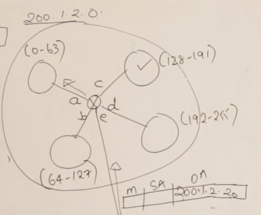 200.1.2.0
(0-63)
(128-191)
c
a
d
b
e
(192-255)
(64-127)
DA
M SA 200.1.2.20